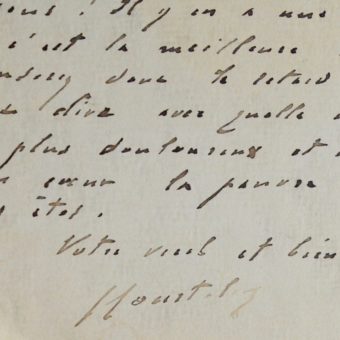 ous ! Il y en a une
c'est la meilleure
donc le retard
dire avec quelle
plus douloureux et
cœur la pauvre
êtes.
Votre et bien